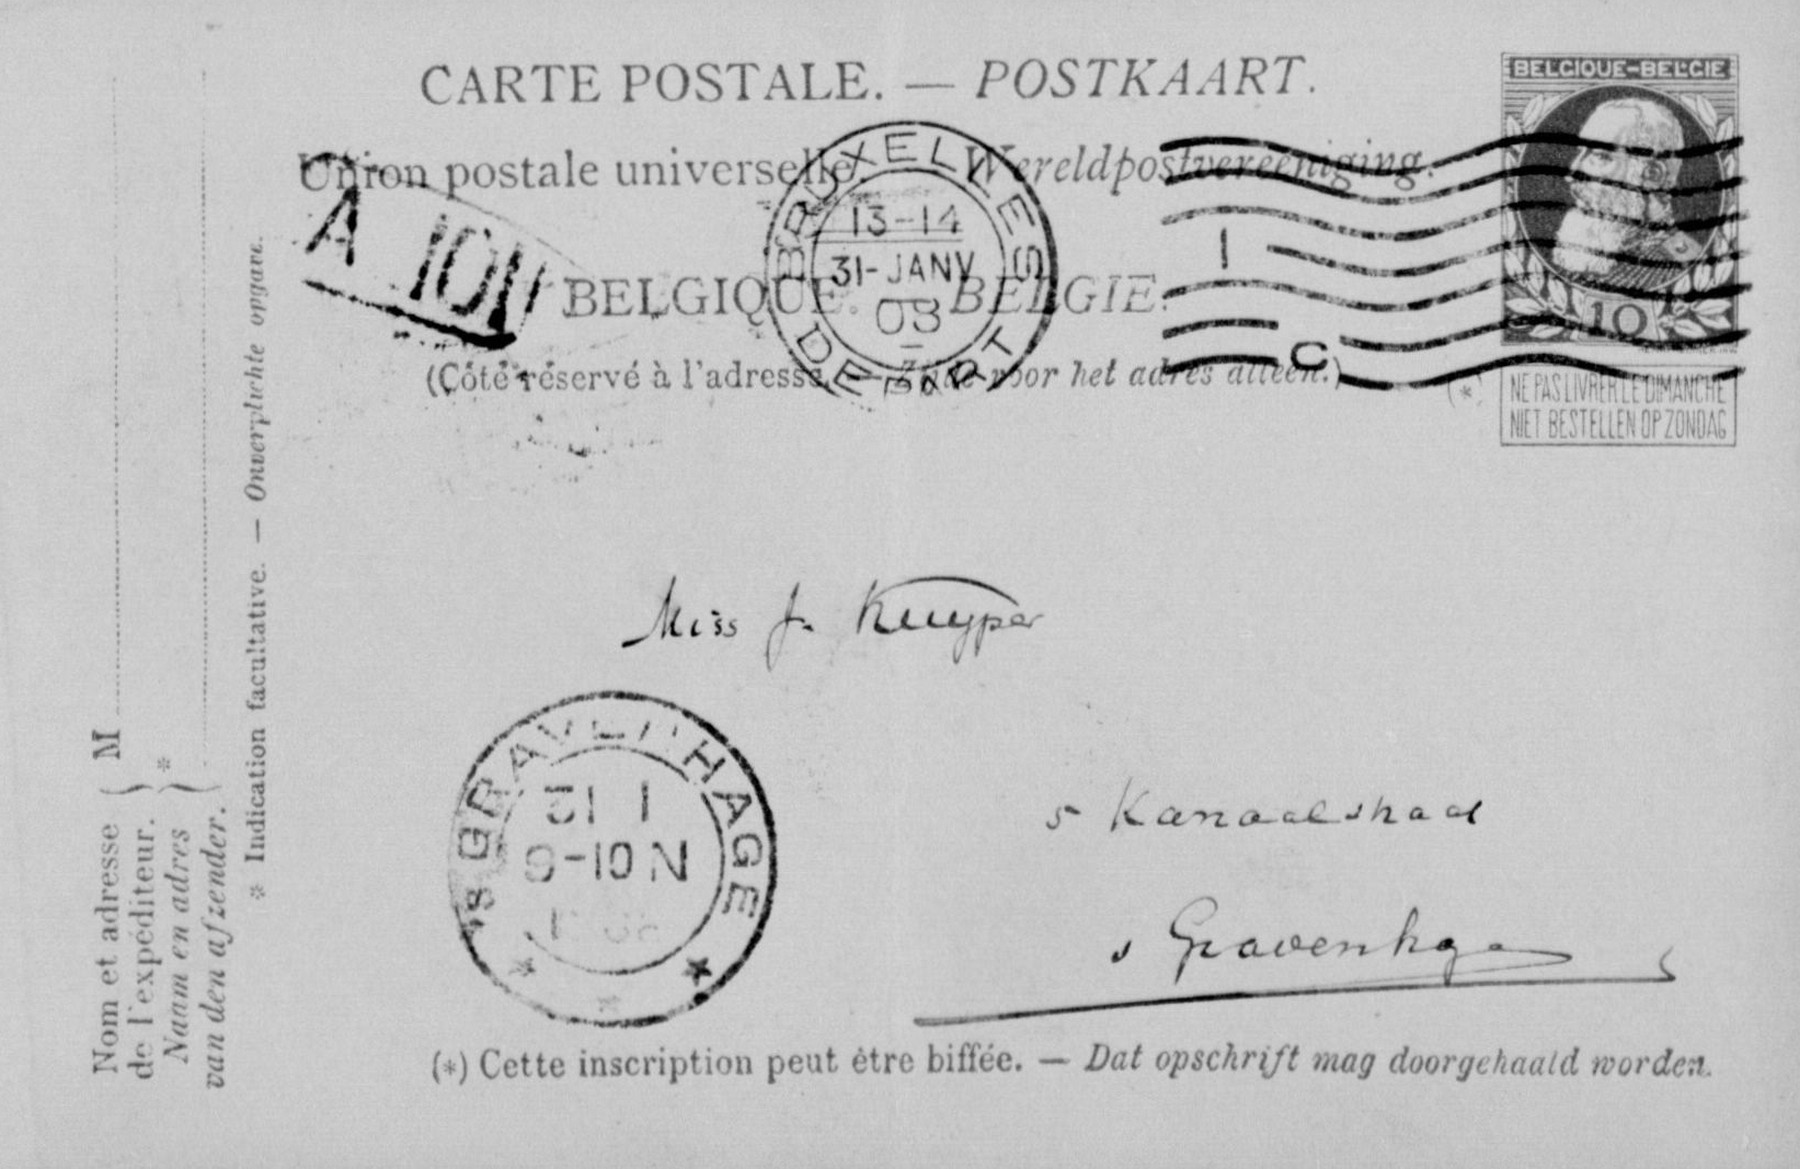 CARTE POSTALE. — POSTKAART.
Union postale universelle. Wereldpostvereeniging.
BELGIQUE. BELGIE.
(Côté réservé à l'adresse. — Zijde voor het adres alleen.)
BELGIQUE-BELGIE
10
(*)
NE PAS LIVRER LE DIMANCHE
NIET BESTELLEN OP ZONDAG
BRUXELLES
13-14
31-JANV
08
DEPART
1
C
A
Miss J. Kuyper
'S GRAVENHAGE
31 1
9-10 N
5 Kanaalstraat
s Gravenhage
(*) Cette inscription peut être biffée. — Dat opschrift mag doorgehaald worden.
Nom et adresse de l'expéditeur. } M
Naam en adres van den afzender. } *
* Indication facultative. — Onverplichte opgave.